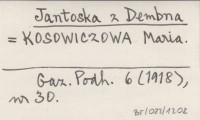 Jantoska z Dembna
= KOSOWICZOWA Maria.
Gaz. Podh. 6 (1918),
nr 30.
BF/027/1202